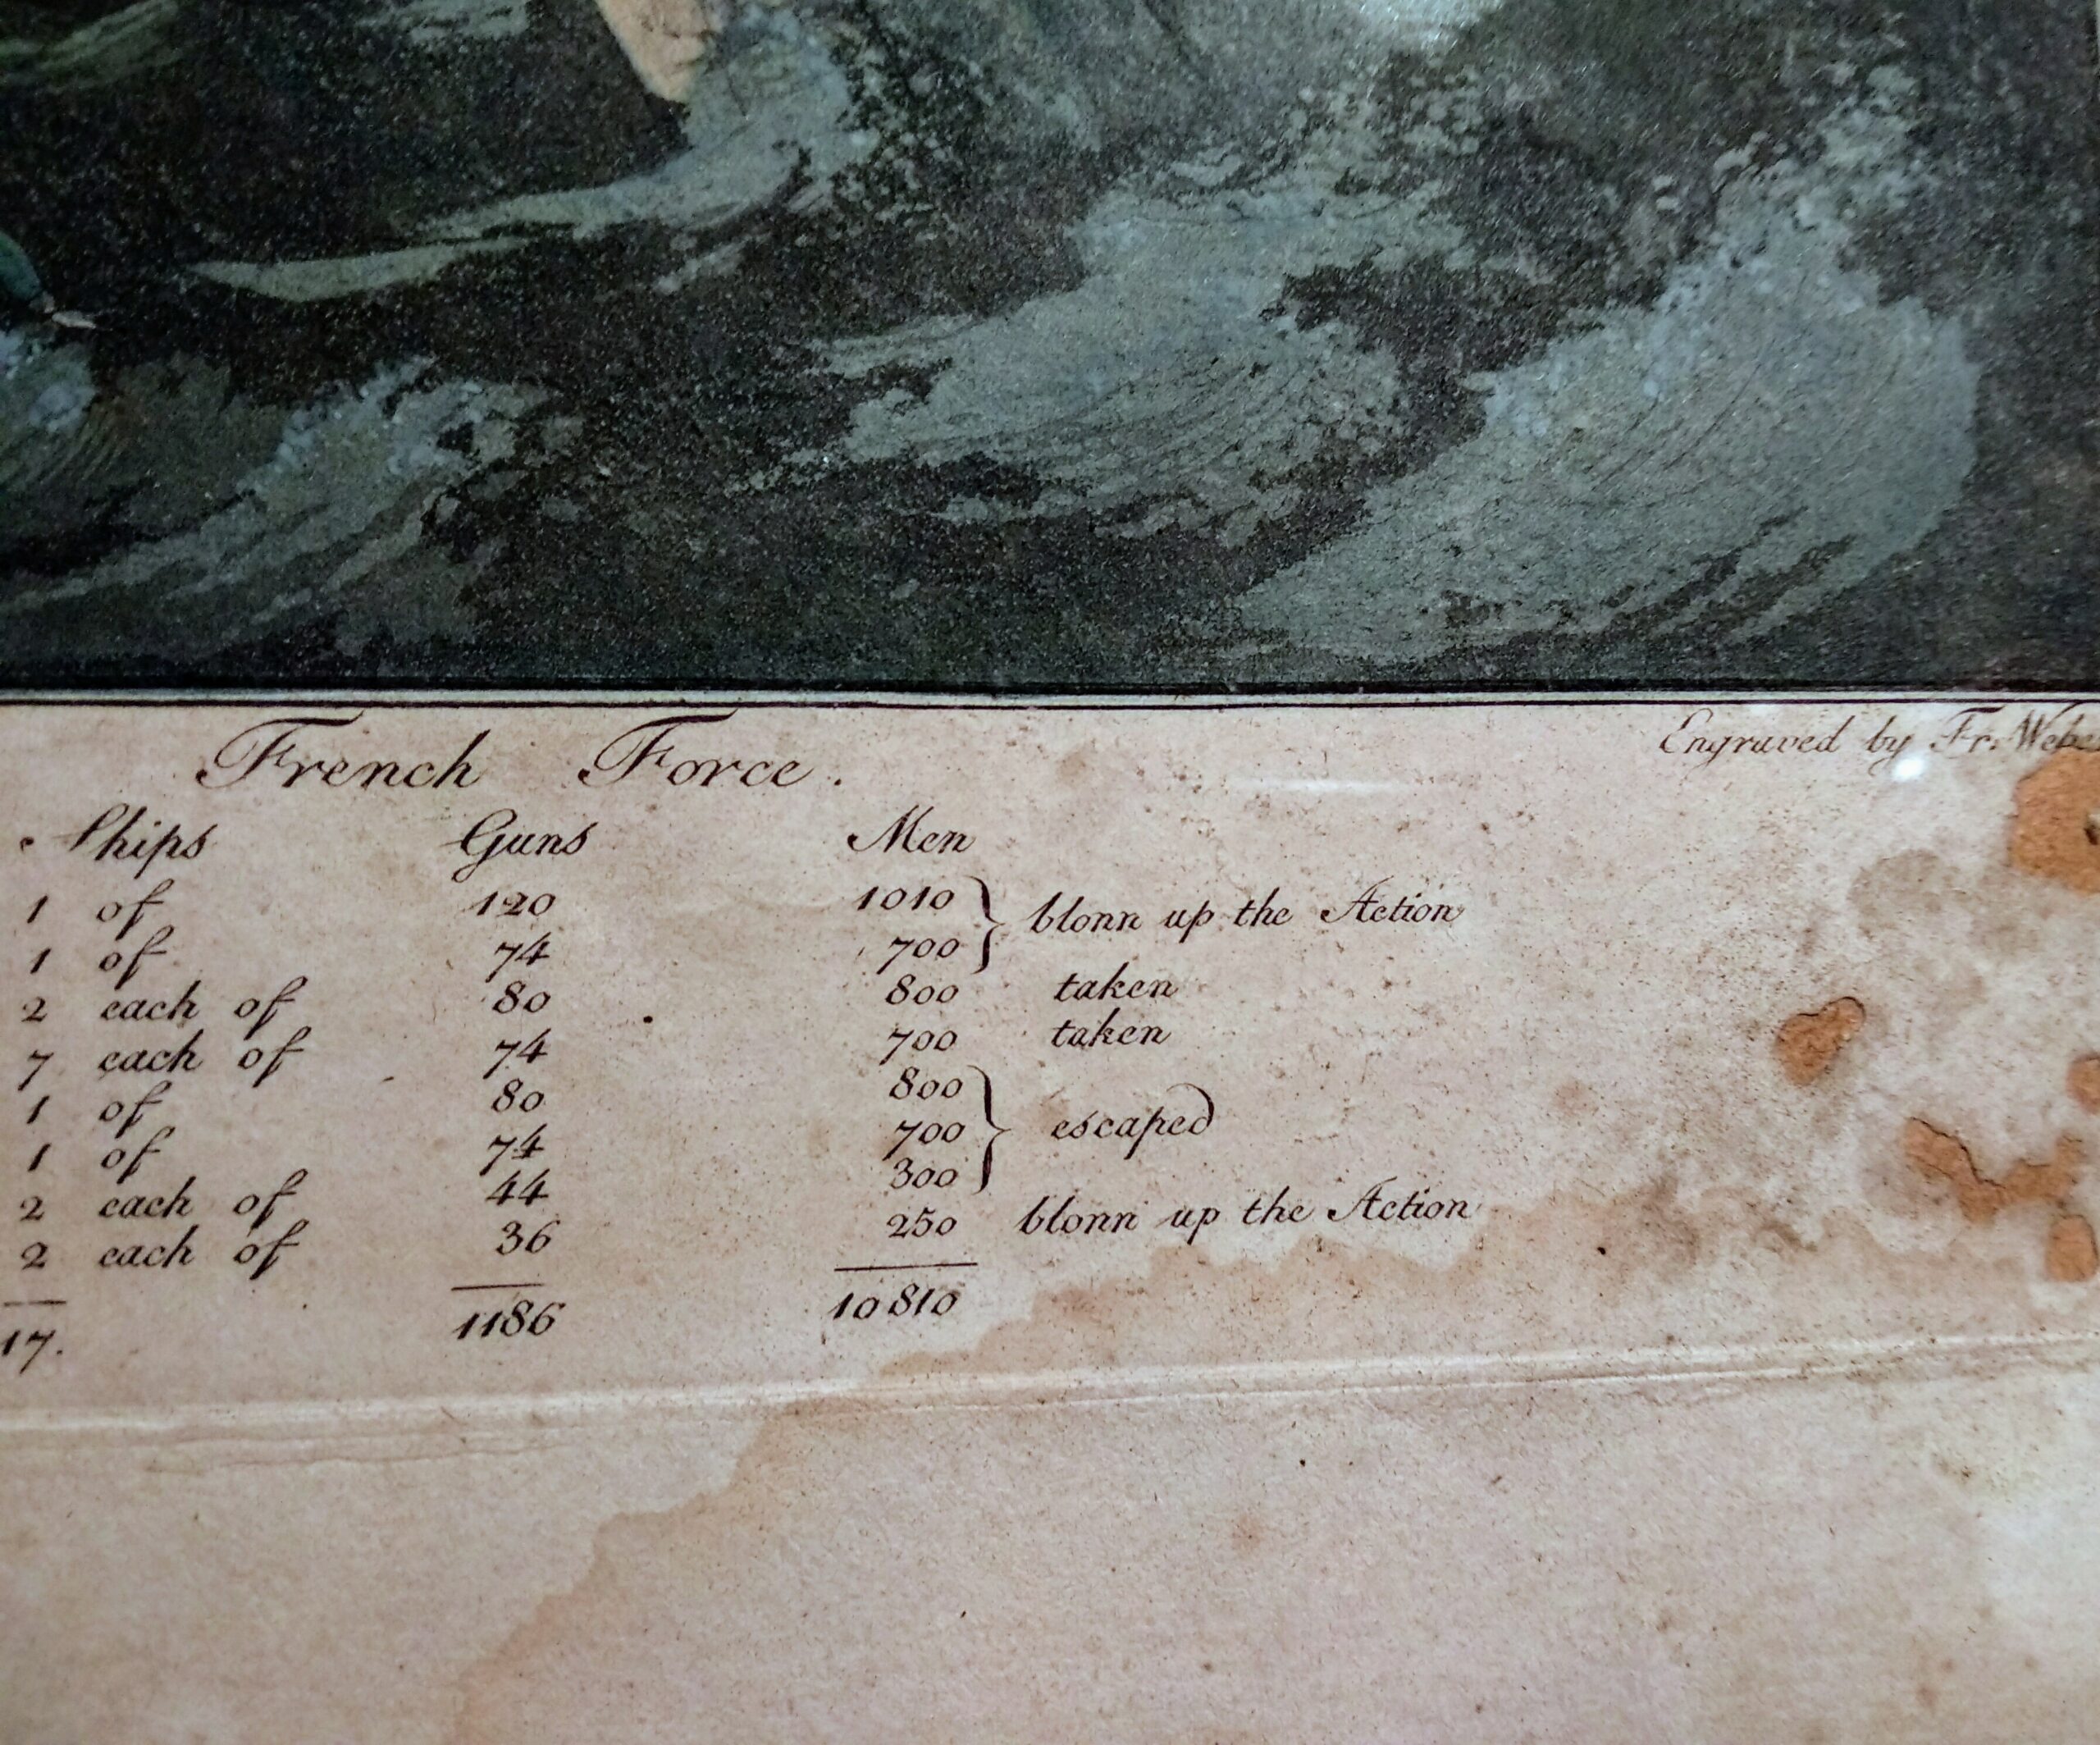 French Force.
Engraved by Fr. Webe
Ships Guns Men
1 of 120 1010 } blonn up the Action
1 of 74 700
2 each of 80 800 taken
7 each of 74 700 taken
1 of 80 800 } escaped
1 of 74 700
2 each of 44 300
2 each of 36 250 blonn up the Action
17. 1186 10810